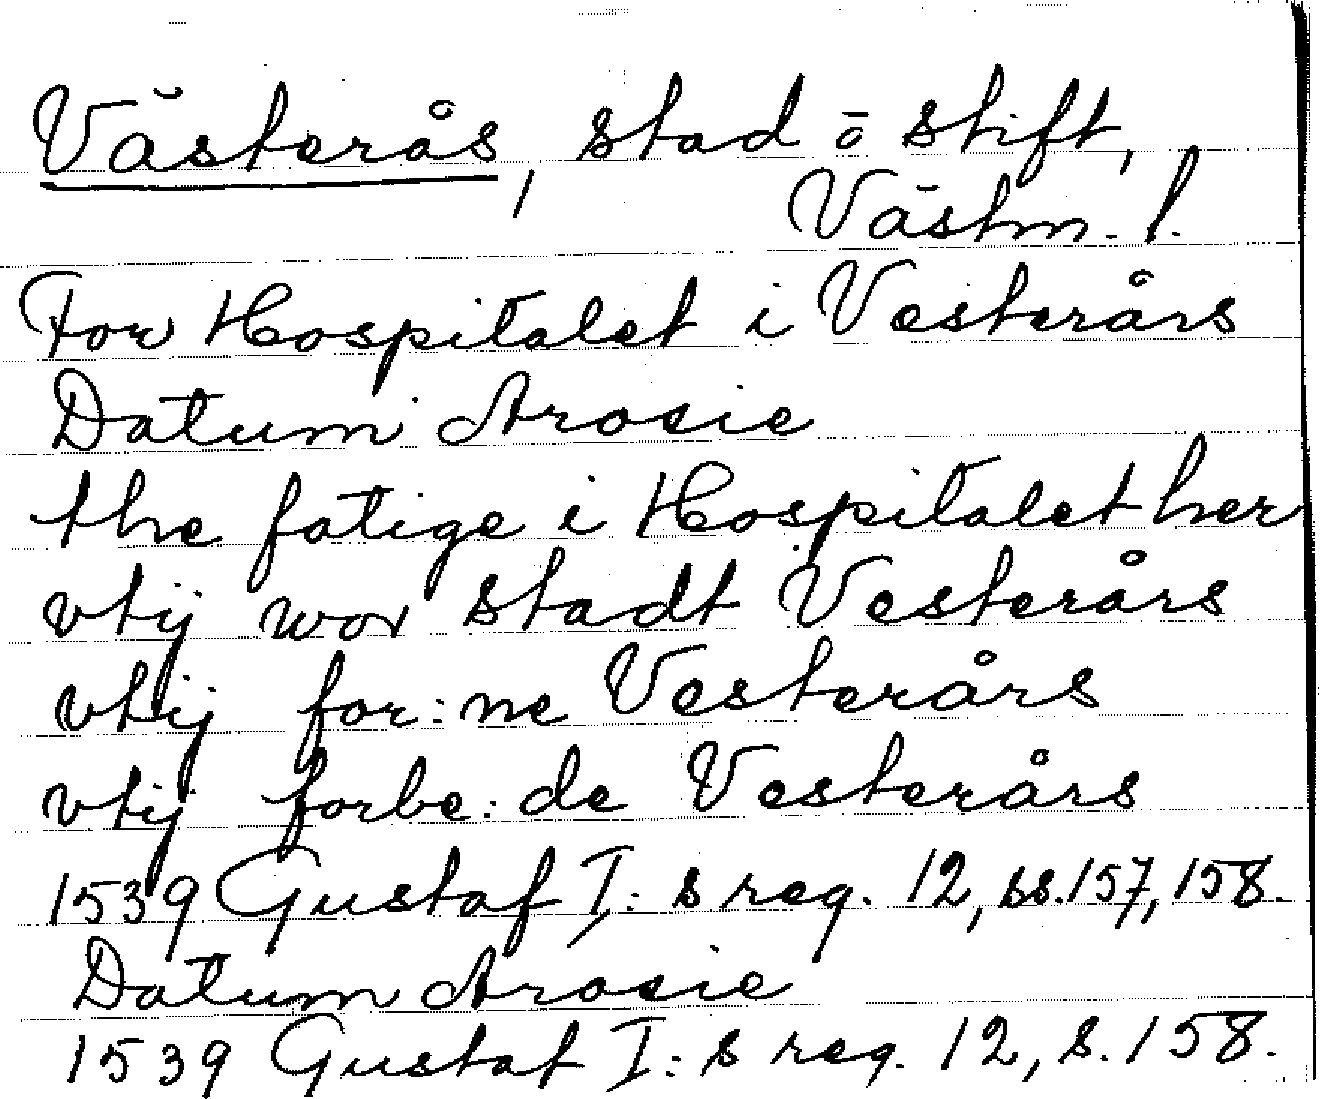 Västerås, stad o stift,
Västm. l.
For Hospitalet i Vesterårs
Datum Arosie
the fatige i Hospitalet her
vtij wor stadt Vesterårs
vtij for:ne Vesterårs
vtij forbe:de Vesterårs
1539 Gustaf I:s reg. 12, ss. 157, 158.
Datum Arosie
1539 Gustaf I:s reg. 12, s. 158.